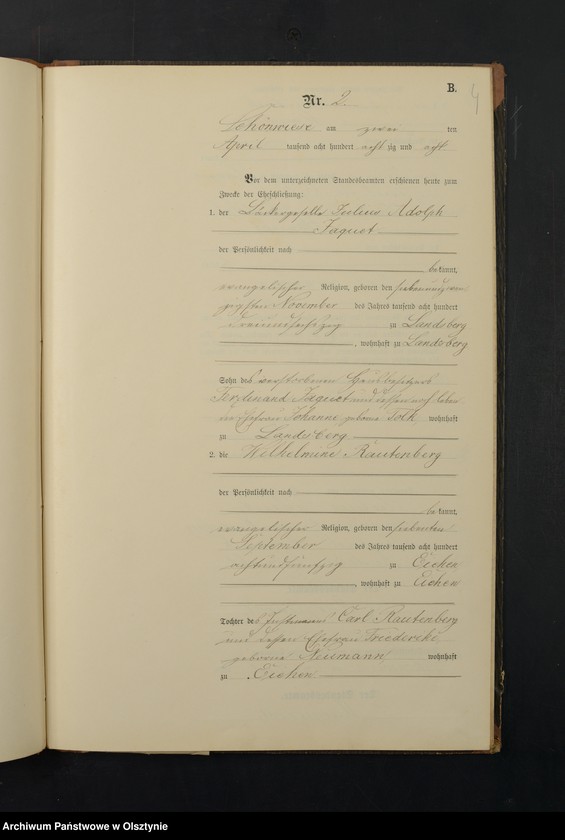 B.
4
Nr. 2.
Schönwiese am zwei ten
April tausend acht hundert achtzig und acht
Vor dem unterzeichneten Standesbeamten erschienen heute zum
Zwecke der Eheschließung:
1. der Bäckergeselle Julius Adolph
Jaquet
der Persönlichkeit nach
bekannt,
evangelischer Religion, geboren den siebenundzwan
zigsten November des Jahres tausend acht hundert
dreiundsechszig zu Landsberg
, wohnhaft zu Landsberg
Sohn des verstorbenen Hausbesitzers
Ferdinand Jaquet und dessen noch leben
den Ehefrau Johanne geborne wohnhaft
zu Landsberg
2. die Wilhelmine Rautenberg
der Persönlichkeit nach
bekannt,
evangelischer Religion, geboren den siebenten
September des Jahres tausend acht hundert
achtundfünfzig zu Eichen
, wohnhaft zu Eichen
Tochter des Instmanns Carl Rautenberg
und dessen Ehefrau Friederike
geborene Neumann wohnhaft
zu Eichen
Archiwum Państwowe w Olsztynie